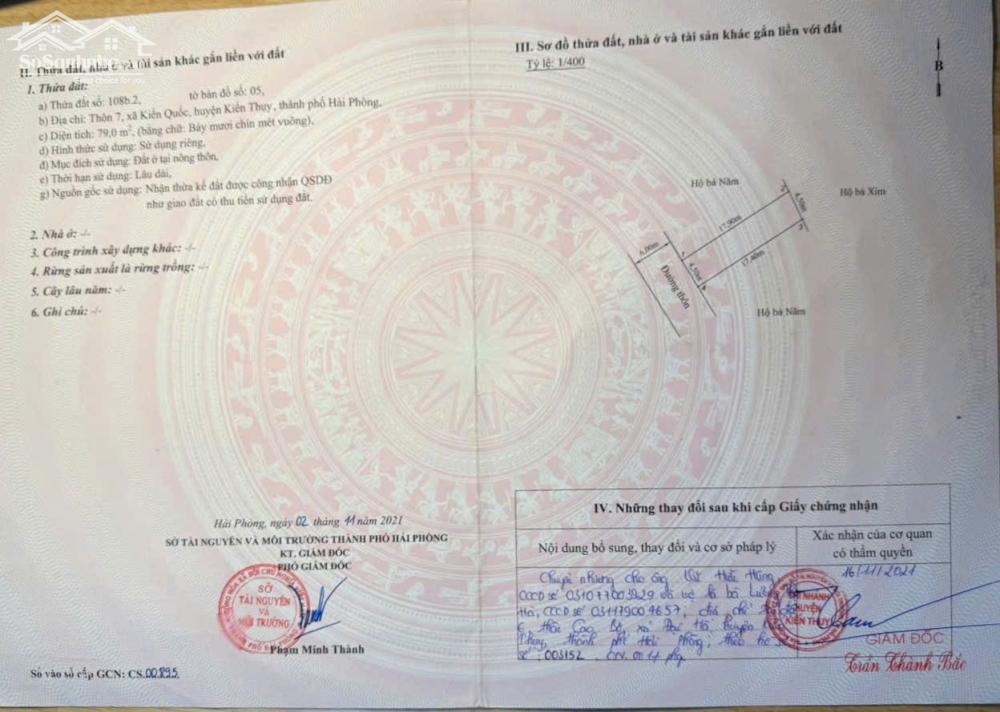 II. Thửa đất, nhà ở và tài sản khác gắn liền với đất
1. Thửa đất:
a) Thửa đất số: 108b.2, tờ bản đồ số: 05,
b) Địa chỉ: Thôn 7, xã Kiến Quốc, huyện Kiến Thụy, thành phố Hải Phòng,
c) Diện tích: 79,0 m², (bằng chữ: Bảy mươi chín mét vuông),
d) Hình thức sử dụng: Sử dụng riêng,
đ) Mục đích sử dụng: Đất ở tại nông thôn,
e) Thời hạn sử dụng: Lâu dài,
g) Nguồn gốc sử dụng: Nhận thừa kế đất được công nhận QSDĐ
như giao đất có thu tiền sử dụng đất.
2. Nhà ở: -/-
3. Công trình xây dựng khác: -/-
4. Rừng sản xuất là rừng trồng: -/-
5. Cây lâu năm: -/-
6. Ghi chú: -/-
Hải Phòng, ngày 02 tháng 11 năm 2021
SỞ TÀI NGUYÊN VÀ MÔI TRƯỜNG THÀNH PHỐ HẢI PHÒNG
KT. GIÁM ĐỐC
PHÓ GIÁM ĐỐC
SỞ
TÀI NGUYÊN
VÀ
MÔI TRƯỜNG
Phạm Minh Thành
Số vào sổ cấp GCN: CS.00895.
III. Sơ đồ thửa đất, nhà ở và tài sản khác gắn liền với đất
Tỷ lệ: 1/400
B
Hộ bà Năm
Hộ bà Xim
4,50m
17,90m
6,00m
17,40m
4,50m
Đường thôn
Hộ bà Năm
IV. Những thay đổi sau khi cấp Giấy chứng nhận
Nội dung bổ sung, thay đổi và cơ sở pháp lý
Xác nhận của cơ quan
có thẩm quyền
Chuyển nhượng cho ông
CCCD số và vợ là bà
Hà, CCCD số địa chỉ
xã huyện
Thụy, thành phố Hải Phòng; theo hồ sơ
số 003152
16/11/2021
CHI NHÁNH
HUYỆN
KIẾN THỤY
GIÁM ĐỐC
Trần Thành Bắc